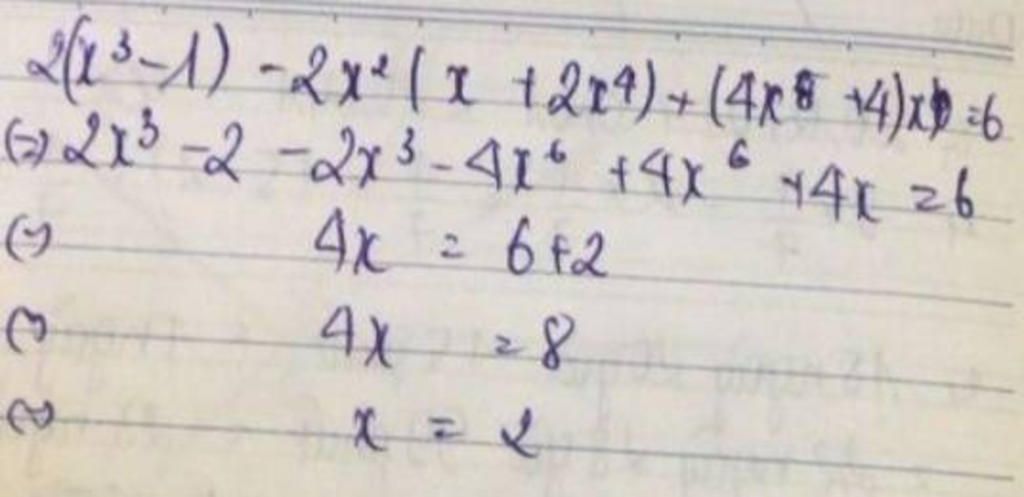 2(x³-1) - 2x²(x + 2x⁴) + (4x⁵ +4)x =6
(=) 2x³ -2 -2x³ -4x⁶ +4x⁶ +4x =6
(=) 4x = 6+2
(=) 4x = 8
(=) x = 2